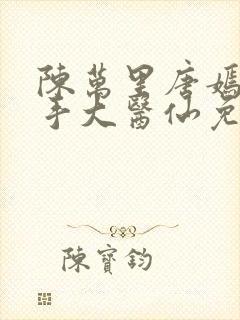 陳萬里唐嫣
手大醫仙免
陳寶鈞